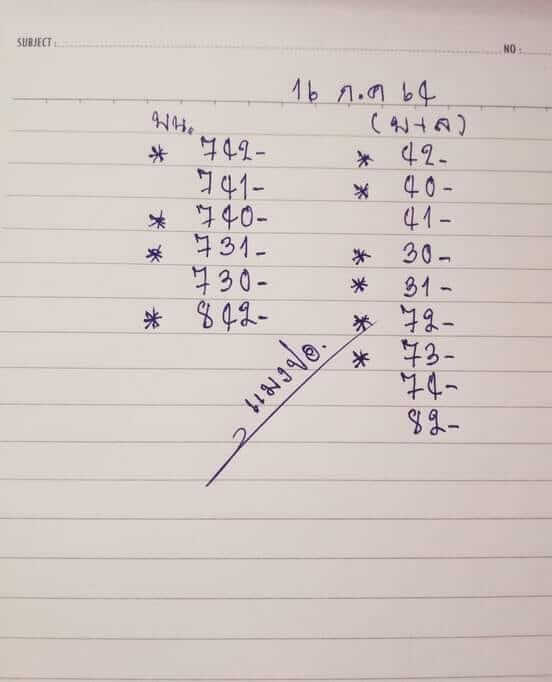 SUBJECT : NO :
16 ก.ค 64
บน. (บ+ล)
* 742- * 42-
741- * 40-
* 740- 41-
* 731- * 30-
730- * 31-
* 842- * 72-
* 73-
74-
82-
แมงปอ.